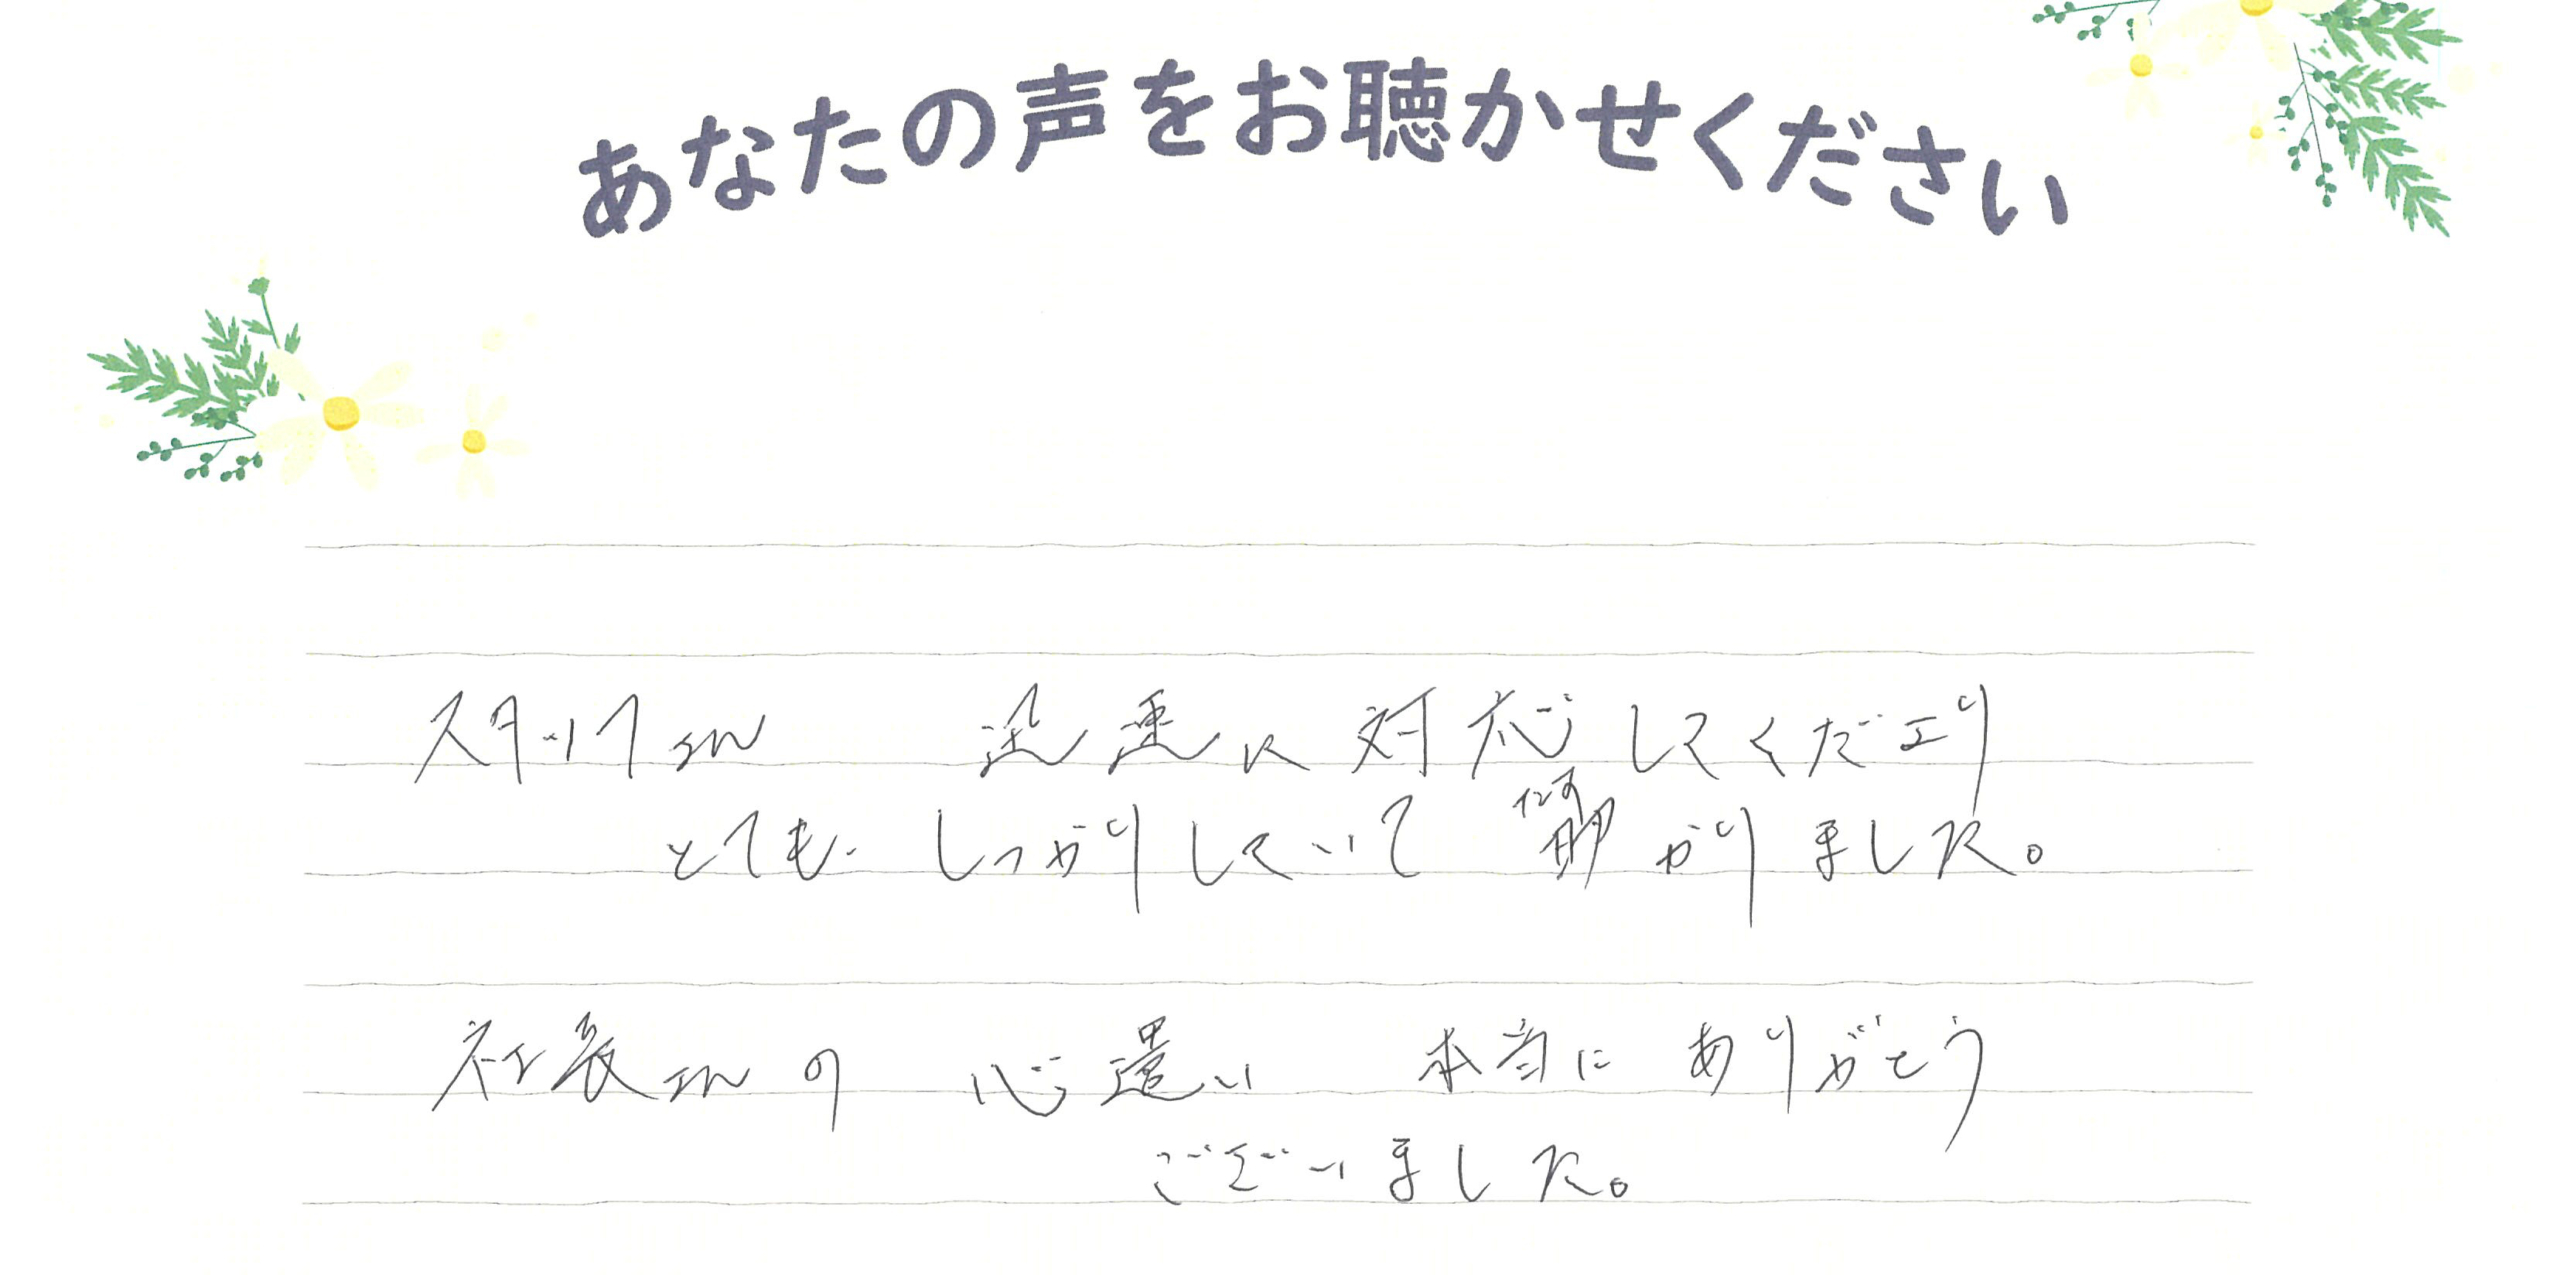 あなたの声をお聴かせください
スタッフさん 迅速に対応してくださり
とても しっかりしていて 助かりました。
社長さんの 心遣い 本当に ありがとう
ございました。